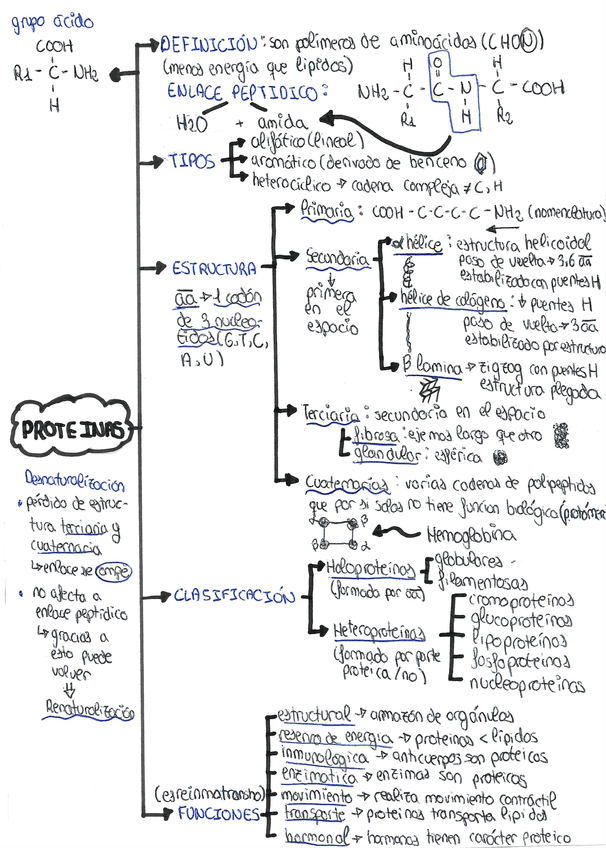 grupo ácido
COOH
R1 - C - NH2
H
DEFINICIÓN: son polímeros de aminoácidos (CHON)
(menos energía que lípidos)
ENLACE PEPTIDICO:
H2O + amida
H O H
NH2 - C - C - N - C - COOH
R1 H R2
TIPOS
alifático (lineal)
aromático (derivado de benceno)
heterocíclico → cadena compleja ≠ C, H
ESTRUCTURA
aa → 1 codón
de 3 nucleo-
tidos (G,T,C,
A,U)
Primaria: COOH - C-C-C-C - NH2 (nomenclatura)
Secundaria
↓
primera
en el
espacio
α hélice: estructura helicoidal
paso de vuelta → 3,6 aa
estabilizado con puentes H
hélice de colágeno: ↓ puentes H
paso de vuelta → 3 aa
estabilizado por estructura
B lamina → zigzag con puentes H
estructura plegada
Terciaria: secundaria en el espacio
fibrosa: eje mas largo que otro
glandular: esférica
Cuaternarias: varias cadenas de polipeptidos
que por si solas no tiene funcion biológica (protómero
α B
B α
Hemoglobina
PROTEINAS
Desnaturalización
• pérdida de estruc-
tura terciaria y
cuaternaria
↳ enlace se rompe
• no afecta a
enlace peptídico
↳ gracias a
esto puede
volver
⇓
Renaturalización
CLASIFICACIÓN
Holoproteinas
(formado por aa)
globulares
filamentosas
Heteroproteinas
(formado por parte
proteica / no)
cromoproteínas
glucoproteínas
lipoproteínas
fosfoproteínas
nucleoproteínas
(esreinmatranho)
FUNCIONES
estructural → armazón de orgánulos
reserva de energia → proteinas < lípidos
inmunológica → anticuerpos son proteicas
enzimática → enzimas son proteicas
movimiento → realiza movimiento contráctil
transporte → proteinas transporta lipidos
hormonal → hormonas tienen carácter proteico